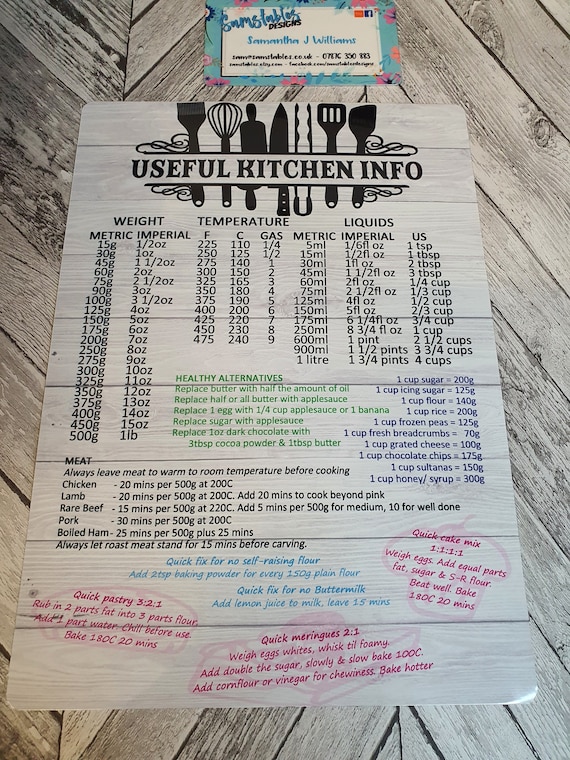 Samstables
DESIGNS
Samantha J Williams
sam@samstables.co.uk - 07876 350 883
samstables.etsy.com - facebook.com/samstablesdesigns
USEFUL KITCHEN INFO
WEIGHT TEMPERATURE LIQUIDS
METRIC IMPERIAL F C GAS METRIC IMPERIAL US
15g 1/2oz 225 110 1/4 5ml 1/6fl oz 1 tsp
30g 1oz 250 125 1/2 15ml 1/2fl oz 1 tbsp
45g 1 1/2oz 275 140 1 30ml 1fl oz 2 tbsp
60g 2oz 300 150 2 45ml 1 1/2fl oz 3 tbsp
75g 2 1/2oz 325 165 3 60ml 2fl oz 1/4 cup
90g 3oz 350 180 4 75ml 2 1/2fl oz 1/3 cup
100g 3 1/2oz 375 190 5 125ml 4fl oz 1/2 cup
125g 4oz 400 200 6 150ml 5fl oz 2/3 cup
150g 5oz 425 220 7 175ml 6 1/4fl oz 3/4 cup
175g 6oz 450 230 8 250ml 8 3/4 fl oz 1 cup
200g 7oz 475 240 9 600ml 1 pint 2 1/2 cups
250g 8oz 900ml 1 1/2 pints 3 3/4 cups
275g 9oz 1 litre 1 3/4 pints 4 cups
300g 10oz
325g 11oz
350g 12oz
375g 13oz
400g 14oz
450g 15oz
500g 1lb
HEALTHY ALTERNATIVES
Replace butter with half the amount of oil
Replace half or all butter with applesauce
Replace 1 egg with 1/4 cup applesauce or 1 banana
Replace sugar with applesauce
Replace 1oz dark chocolate with
3tbsp cocoa powder & 1tbsp butter
1 cup sugar = 200g
1 cup icing sugar = 125g
1 cup flour = 140g
1 cup rice = 200g
1 cup frozen peas = 125g
1 cup fresh breadcrumbs = 70g
1 cup grated cheese = 100g
1 cup chocolate chips = 175g
1 cup sultanas = 150g
1 cup honey/ syrup = 300g
MEAT
Always leave meat to warm to room temperature before cooking
Chicken - 20 mins per 500g at 200C
Lamb - 20 mins per 500g at 200C. Add 20 mins to cook beyond pink
Rare Beef - 15 mins per 500g at 220C. Add 5 mins per 500g for medium, 10 for well done
Pork - 30 mins per 500g at 200C
Boiled Ham- 25 mins per 500g plus 25 mins
Always let roast meat stand for 15 mins before carving.
Quick fix for no self-raising flour
Add 2tsp baking powder for every 150g plain flour
Quick fix for no Buttermilk
Add lemon juice to milk, leave 15 mins
Quick cake mix
1:1:1:1
Weigh eggs. Add equal parts
fat, sugar & S-R flour.
Beat well. Bake
180C 20 mins
Quick pastry 3:2:1
Rub in 2 parts fat into 3 parts flour.
Add 1 part water. Chill before use.
Bake 180C 20 mins
Quick meringues 2:1
Weigh eggs whites, whisk til foamy.
Add double the sugar, slowly & slow bake 100C.
Add cornflour or vinegar for chewiness. Bake hotter